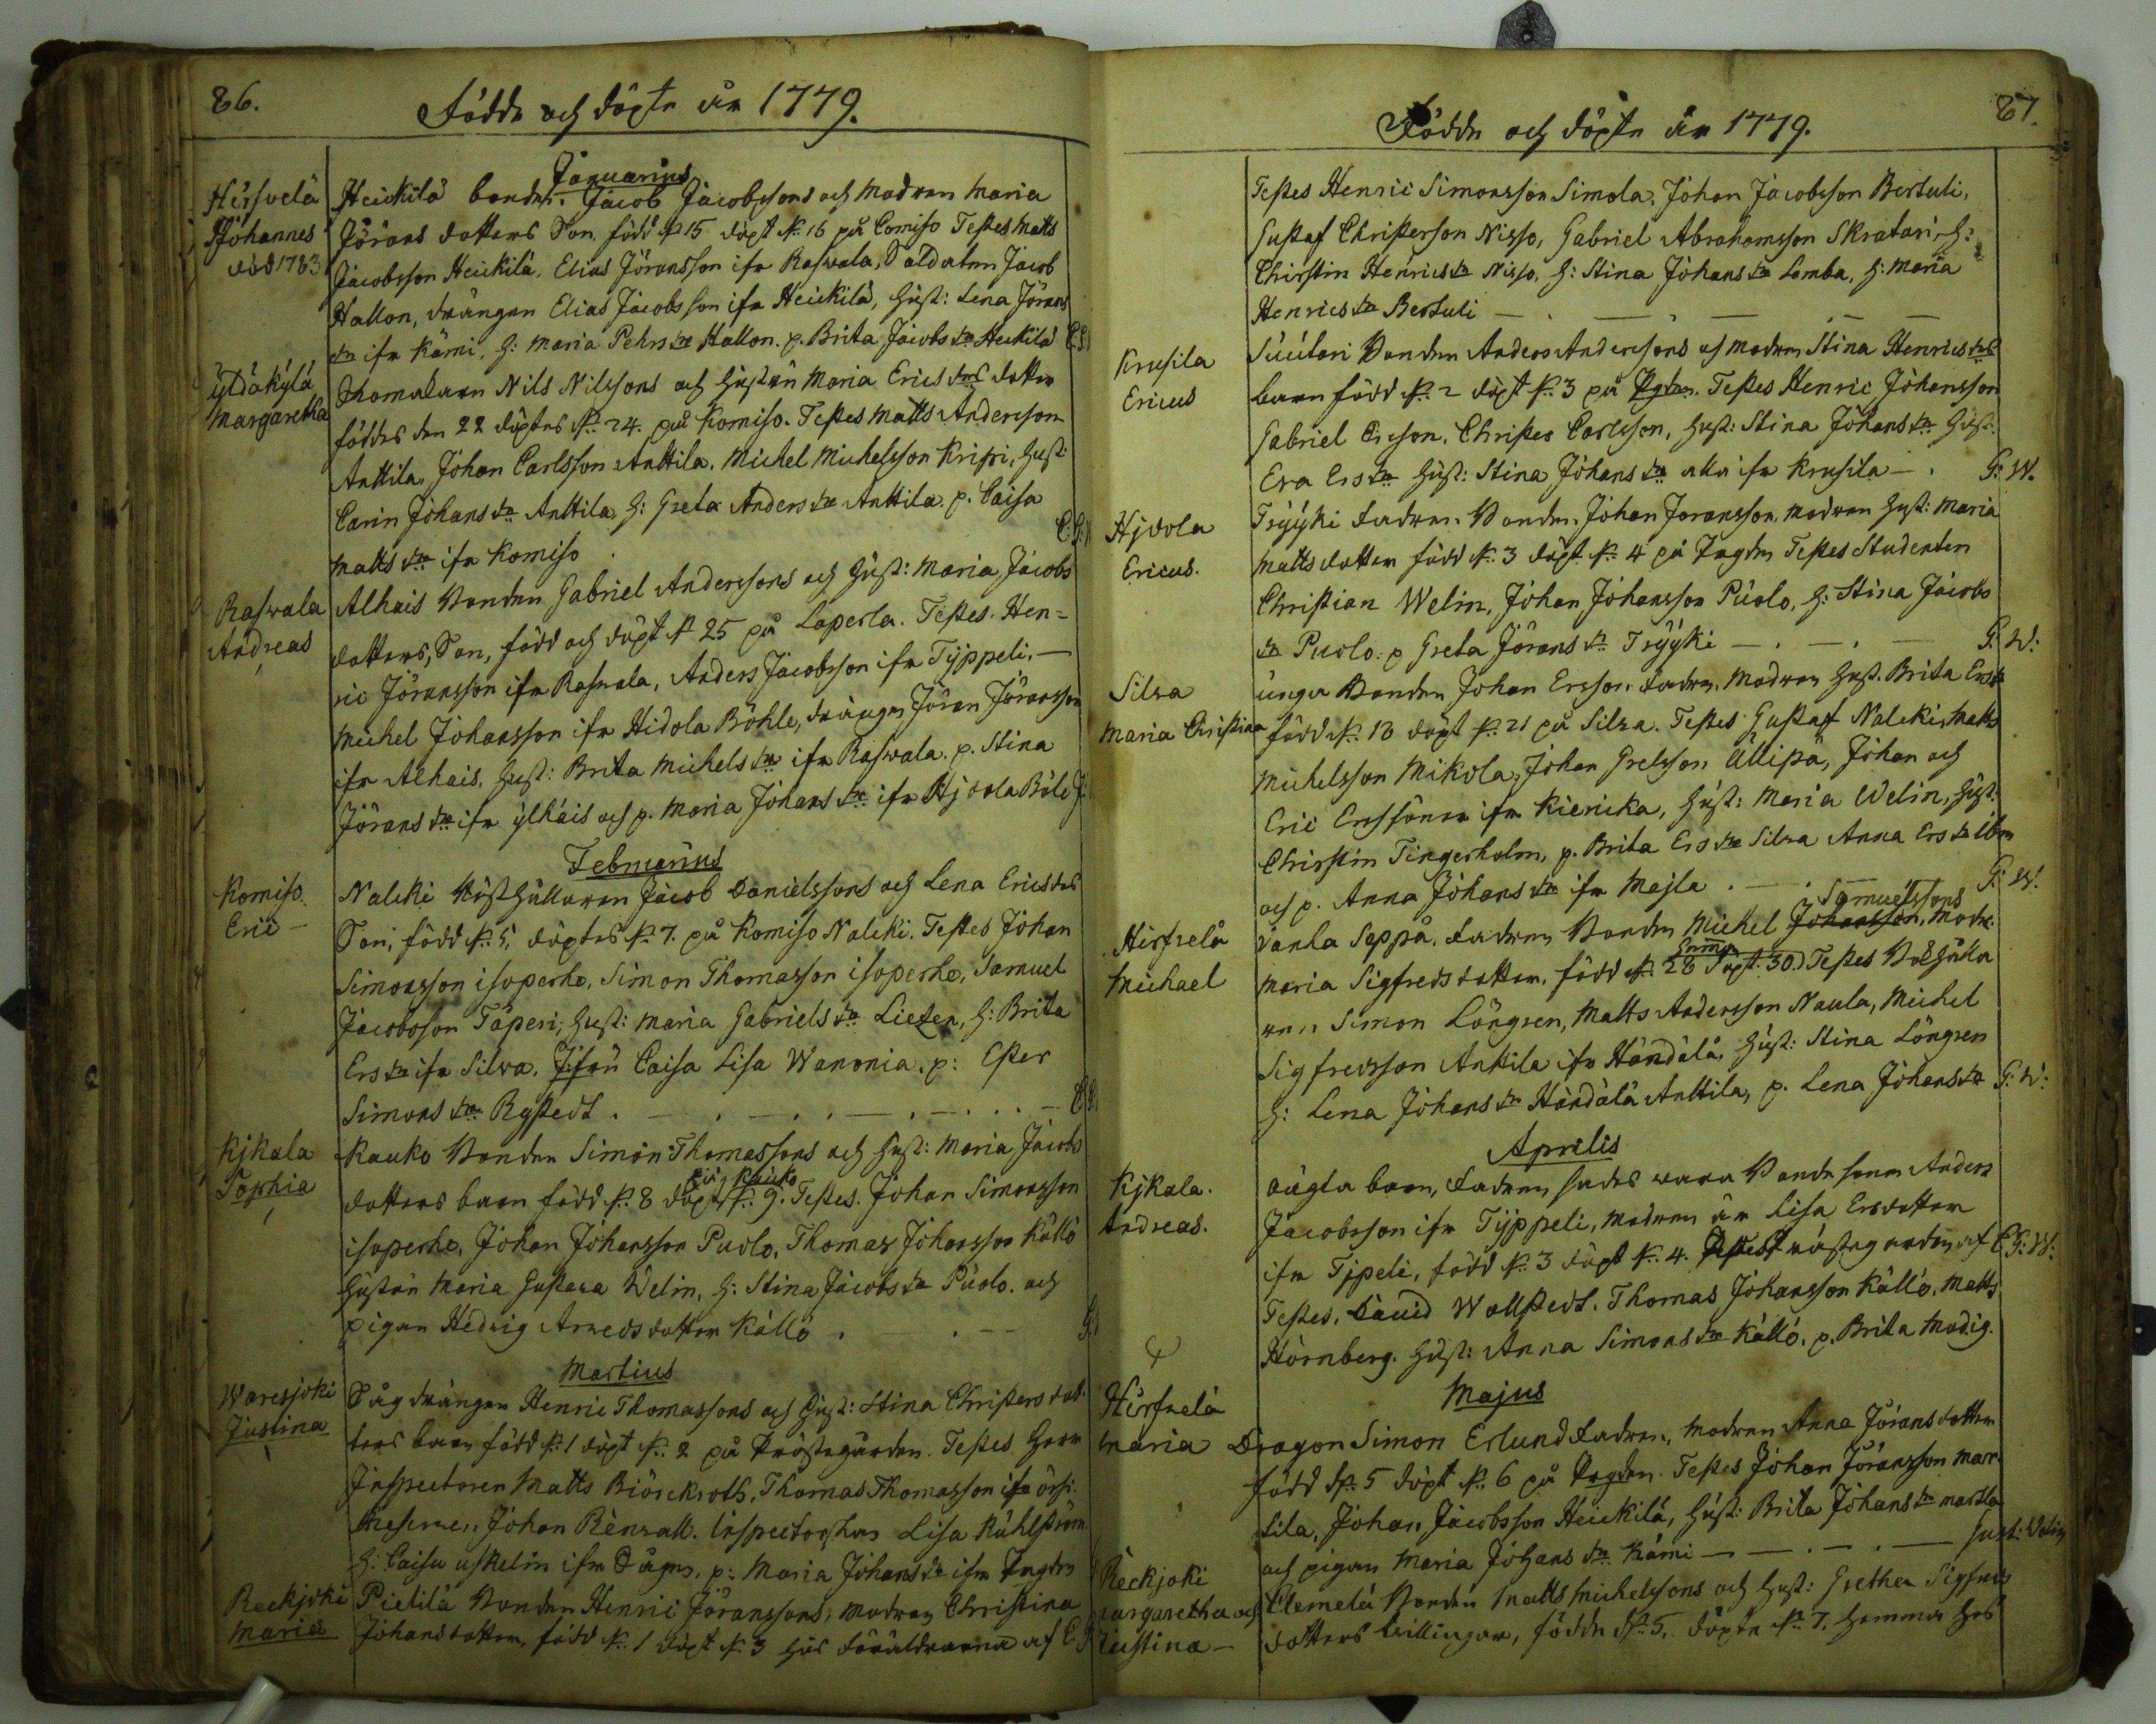 86.
Födde och döpte år 1779.
Januarius
Hirsvelä
Johannes
död 1783
Heickilä bonden Jacob Jacobssons och modren Maria
Jörans dotters Son född d. 15 döpt d. 16 på Comiso Testes Matts
Jacobsson Heickilä, Elias Jöransson ifr Raswala, Soldaten Jacob
Hallon, drängen Elias Jacobsson ifr Heickilä, hust: Lena Jörans
dr ifr Kämi, h: Maria Pehrs dr Hallon. p. Brita Jacobs dr Heckilä
Yldäkylä
Margaretha
Nils Nilssons och hustrun Maria Erics drs dotter
föddes den 22 döptes d. 24. på Komiso. Testes Matts Andersson
Anttila, Johan Carlsson Anttila, Michel Michelsson Kripi, hust:
Carin Johans dr Anttila, h: Greta Anders dr Anttila p. Caisa
Matts dr ifr Komiso
Raswala
Andreas
Alhais Bonden Gabriel Anderssons och hust: Maria Jacobs
dotters, Son, född och döpt d. 25 på Laperla. Testes. Hen=
ric Jöransson ifr Raswala, Anders Jacobsson ifr Tyyppeli,
Michel Johansson ifr Hidola Böhle, drängen Jöran Jöransson
ifr Alhais, hust: Brita Michels dr ifr Raswala. p. Stina
Jörans dr ifr ylhäis och p. Maria Johans dr ifr Hjdola Böle
Februarius
Komiso.
Eric
Nalcki Jacob Danielssons och Lena Erics drs
Son, född d. 5, döptes d. 7. på Komiso Nalcki. Testes Johan
Simonsson isoperhe, Simon Thomasson isoperhe, Samuel
Jacobsson Täperi, hust: Maria Gabriels dr Liezen, h: Brita
Ers dr ifr Silva. Caisa Lisa Wanonia. p: Ester
Simons dr Rystedt
Kjkala
Sophia
Kauko Bonden Simon Thomassons och hust: Maria Jacobs
dotters barn född d. 8 döpt d. 9. Testes. Johan Simonsson
isoperhe, Johan Johansson Puolo, Thomas Johansson Källö
hustrun Maria Gustava Welin, h: Stina Jacobs dr Puolo. och
pigan Hedvig Arvedsdotter Källö
Martius
Waresjoki
Justina
Sågdrängen Henric Thomassons och hust: Stina Christers dot
ters barn född d. 1 döpt d. 2 på Prästegården. Testes Herr
Inspectoren Matts Biörckroth, Thomas Thomasson ifr
Johan Renvall. Inspectorskan Lisa Kühlström
h: Caisa Askelin ifr Sågen, p: Maria Johans dr ifr Prgdn
Reckjoki
Maria
Pietilä Bonden Henric Jöranssons, modren Christina
Johans dotter, född d. 1 döpt d. 3 hos föräldrarna af
87.
Födde och döpte år 1779.
Testes Henric Simonsson Simola, Johan Jacobsson Bertuli,
Gustaf Christerson Nisso, Gabriel Abrahamsson Skratari, h:
Christin Henrics dr Nisso, h: Stina Johans dr Lamba, h: Maria
Henrics dr Bertuli
Krusila
Ericus
Suutari Bonden Anders Anderssons och modren Stina Henrics drs
barn född d. 2 döpt d. 3 på Prgdn. Testes Henric Johansson
Gabriel Ericson, Christer Carlsson, hust: Stina Johans dr hust.
Eva Ers dr hust: Stina Johans dr alla ifr Krusila G: W.
Hjdola
Ericus.
Tryyki fadren Bonden Johan Joransson, modren hust: Maria
Matts dotter född d. 3 döpt d. 4 på Prgdn Testes Studenten
Christian Welin, Johan Johansson Puolo, h: Stina Jacobs
dr Puolo: p Greta Jörans dr Tryyki G: W:
Silva
Maria Christina
unga Bonden Johan Ersson fadren, Modren hust. Brita Ers dr
född d. 18 döpt d. 21 på Silva. Testes Gustaf Nalcki, Matts
Michelsson Mikola, Johan Grelsson Ällipä, Johan och
Eric Erssöner ifr Kiericka, hust: Maria Welin, hust.
Christin Tingerholm, p. Brita Ers dr Silva Anna Ers dr ibm
och p. Anna Johans dr ifr Majla G: W.
Hirfvelä
Michael
Vanha Seppä, fadren Bonden Michel Johansson, Samuelssons modr.
Maria Sigfreds dotter, född d. 28 döpt. 30. Testes
Simon Löngren, Matts Andersson Naula, Michel
Sigfredsson Anttila ifr Händälä, hust: Stina Löngren
h: Lena Johans dr Händälä Anttila, p. Lena Johans dr G: W:
Aprilis
Kjkala.
Andreas.
oägta barn, fadren sades wara Bonde sonen Anders
Jacobsson ifr Tyyppeli, modren är Lisa Ersdotter
ifr Tjpeli, född d. 3 döpt d. 4. i Prästegården af G: W:
Testes. David Wallstedt, Thomas Johansson Källö, Matts
Hörnberg, hust: Anna Simons dr Källö, p. Brita Modig.
Majus
Hirfvelä
Maria
Dragon Simon Erlund fadren, modren Anna Jörans dotter
född d. 5 döpt d. 6 på Prgdn. Testes Johan Jöransson Mar
tila, Johan Jacobsson Heickilä, hust: Brita Johans dr Martla
och pigan Maria Johans dr Kämi Gust: Welin
Reckjoki
Margaretha och
Justina
Clemelä Bonden Matts Michelssons och hust: Gretha Sigfreds
dotters twillingar, födde d. 5, döpte d. 7, hemma hos